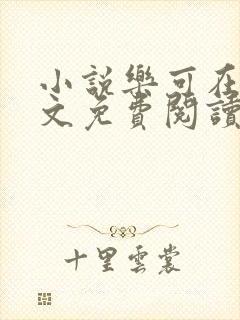 小説樂可在
文免費閱讀
十里雲裳